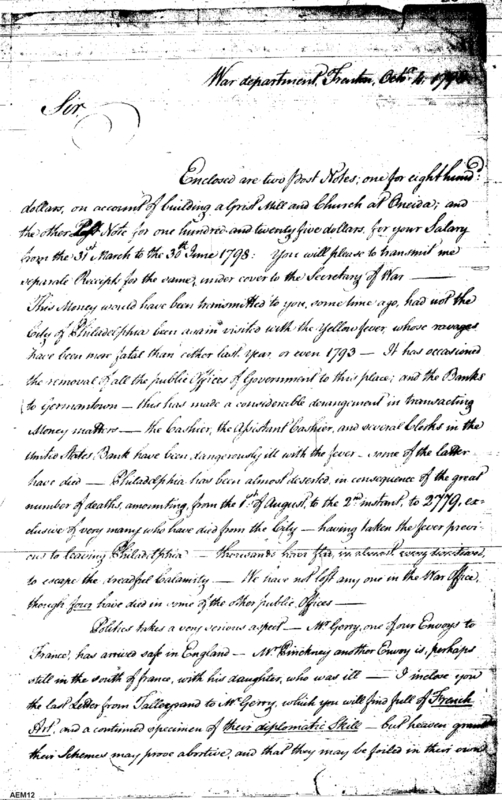 War department, Trenton, Octr. 4, 1798.
Sir,
Enclosed are two Post Notes; one for eight hund:
dollars, on account of building a Grist Mill and Church at Oneida; and
the other Post Note for one hundred and twenty five dollars, for your Salary
from the 31st March to the 30th June 1798: You will please to transmit me
separate Receipts for the same, under cover to the Secretary of War —
This Money would have been transmitted to you, some time ago, had not the
City of Philadelphia been again visited with the Yellow fever, whose ravages
have been more fatal than either last Year, or even 1793 — It has occasioned
the removal of all the public Offices of Government to this place; and the Banks
to Germantown — this has made a considerable derangement in transacting
Money matters — the Cashier, the Assistant Cashier, and several Clerks in the
United States Bank have been dangerously ill with the fever — some of the latter
have died — Philadelphia has been almost deserted, in consequence of the great
number of deaths, amounting, from the 1st of August, to the 2nd instant, to 2779, ex-
clusive of very many who have died from the City — having taken the fever previ-
ous to leaving Philadelphia — thousands have fled, in almost every direction,
to escape the dreadful Calamity — We have not lost any one in the War Office,
though four have died in some of the other public Offices —
Politics takes a very serious aspect — Mr. Gerry, one of our Envoys to
France, has arrived safe in England — Mr. Pinckney another Envoy is, perhaps
still in the south of france, with his daughter, who was ill — I inclose you
the last letter from Talleyrand to Mr. Gerry, which you will find full of French
Art, and a continued specimen of their diplomatic Skill — but heaven grant
their Schemes may prove abortive, and that they may be foiled in their own
AEM12